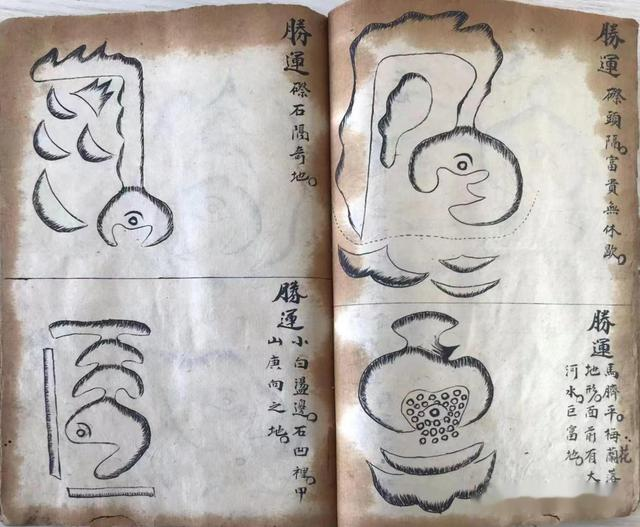 勝運磜頭隔富貴無休歇
勝運馬臍平梅蘭落
地形面前有大花
河水巨富地
勝運磜石隔奇地
勝運小白盪邊石凹裡甲
山庚向之地